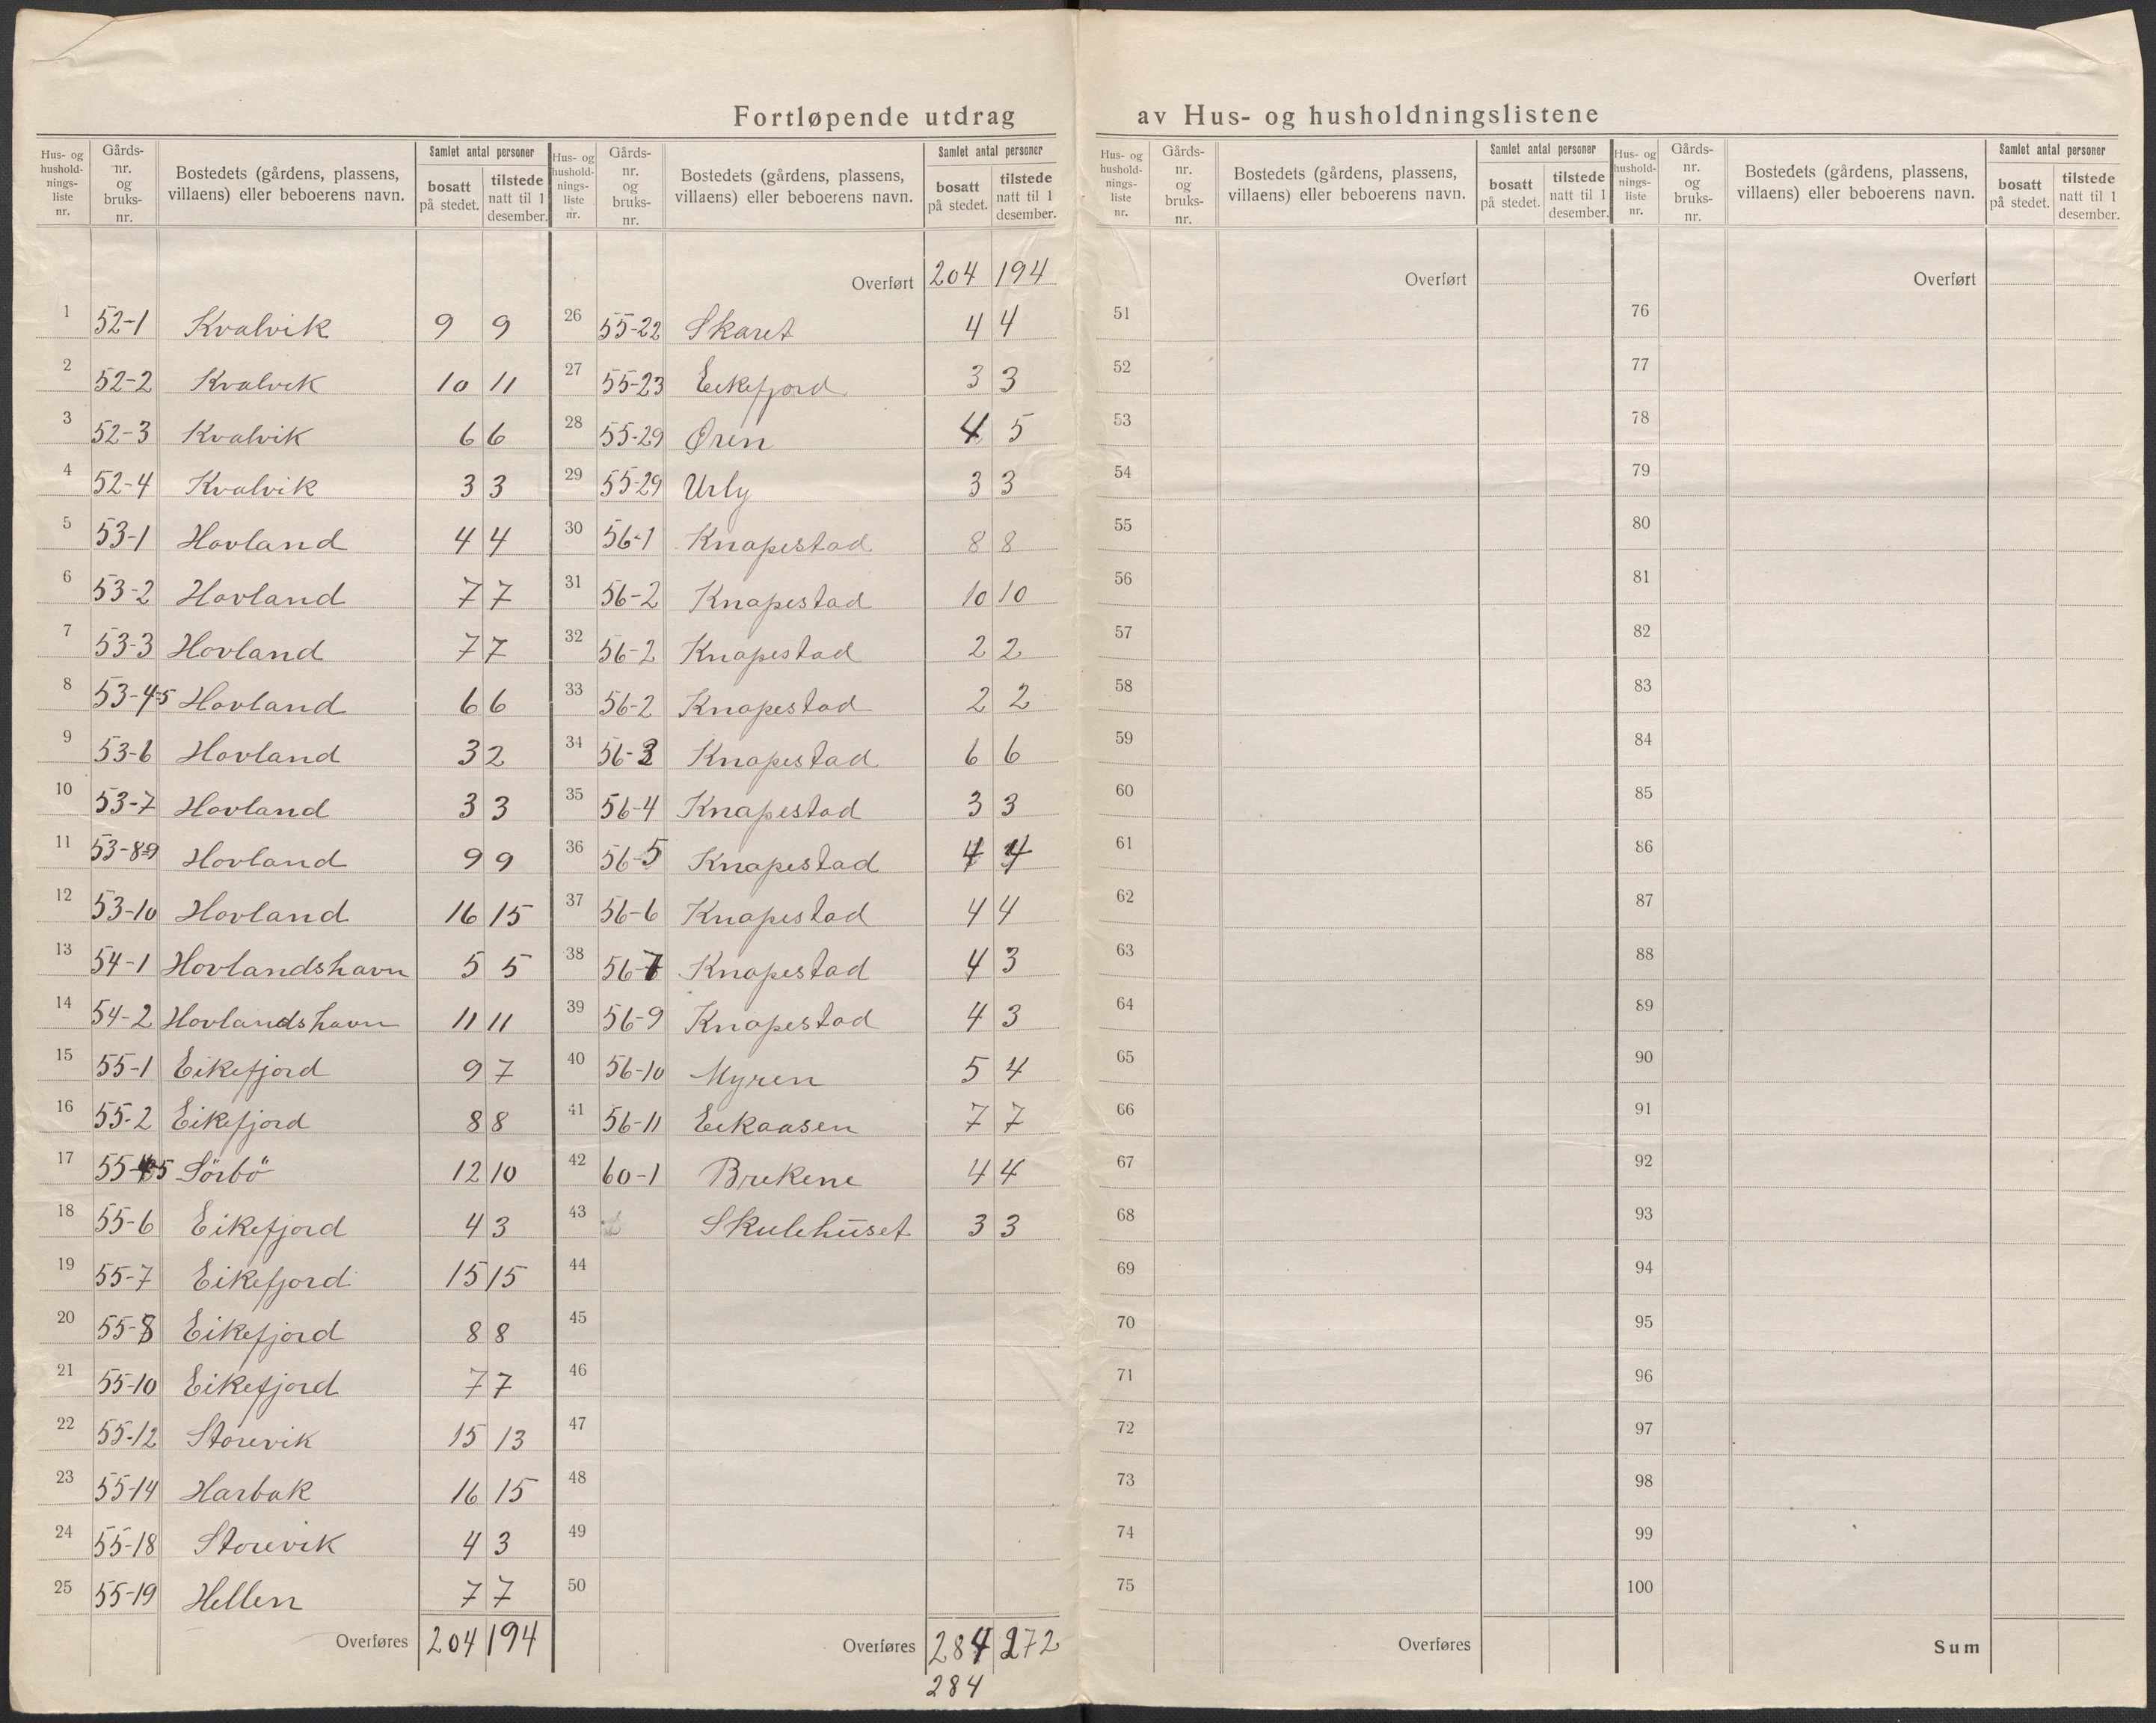 Fortløpende utdrag av Hus- og husholdningslistene
Hus- og hushold- nings- liste nr. Gårds- nr. og bruks- nr. Bostedets (gårdens, plassens, villaens) eller beboerens navn. Samlet antal personer bosatt på stedet. tilstede natt til 1 desember.
1 52-1 Kvalvik 9 9
2 52-2 Kvalvik 10 11
3 52-3 Kvalvik 6 6
4 52-4 Kvalvik 3 3
5 53-1 Hovland 4 4
6 53-2 Hovland 7 7
7 53-3 Hovland 7 7
8 53-4-5 Hovland 6 6
9 53-6 Hovland 3 2
10 53-7 Hovland 3 3
11 53-8-9 Hovland 9 9
12 53-10 Hovland 16 15
13 54-1 Hovlandshavn 5 5
14 54-2 Hovlandshavn 11 11
15 55-1 Eikefjord 9 7
16 55-2 Eikefjord 8 8
17 55-4-5 Sörbö 12 10
18 55-6 Eikefjord 4 3
19 55-7 Eikefjord 15 15
20 55-8 Eikefjord 8 8
21 55-10 Eikefjord 7 7
22 55-12 Storevik 15 13
23 55-14 Harbak 16 15
24 55-18 Storevik 4 3
25 55-19 Hellen 7 7
Overføres 204 194
Hus- og hushold- nings- liste nr. Gårds- nr. og bruks- nr. Bostedets (gårdens, plassens, villaens) eller beboerens navn. Samlet antal personer bosatt på stedet. tilstede natt til 1 desember.
Overført 204 194
26 55-22 Skaret 4 4
27 55-23 Eikefjord 3 3
28 55-29 Øren 4 5
29 55-29 Urly 3 3
30 56-1 Knapestad 8 8
31 56-2 Knapestad 10 10
32 56-2 Knapestad 2 2
33 56-2 Knapestad 2 2
34 56-3 Knapestad 6 6
35 56-4 Knapestad 3 3
36 56-5 Knapestad 4 4
37 56-6 Knapestad 4 4
38 56-7 Knapestad 4 3
39 56-9 Knapestad 4 3
40 56-10 Myren 5 4
41 56-11 Eikaasen 7 7
42 60-1 Brekene 4 4
43 Skulehuset 3 3
44
45
46
47
48
49
50
Overføres 284 272
284
Hus- og hushold- nings- liste nr. Gårds- nr. og bruks- nr. Bostedets (gårdens, plassens, villaens) eller beboerens navn. Samlet antal personer bosatt på stedet. tilstede natt til 1 desember.
Overført
51
52
53
54
55
56
57
58
59
60
61
62
63
64
65
66
67
68
69
70
71
72
73
74
75
Overføres
Hus- og hushold- nings- liste nr. Gårds- nr. og bruks- nr. Bostedets (gårdens, plassens, villaens) eller beboerens navn. Samlet antal personer bosatt på stedet. tilstede natt til 1 desember.
Overført
76
77
78
79
80
81
82
83
84
85
86
87
88
89
90
91
92
93
94
95
96
97
98
99
100
Sum